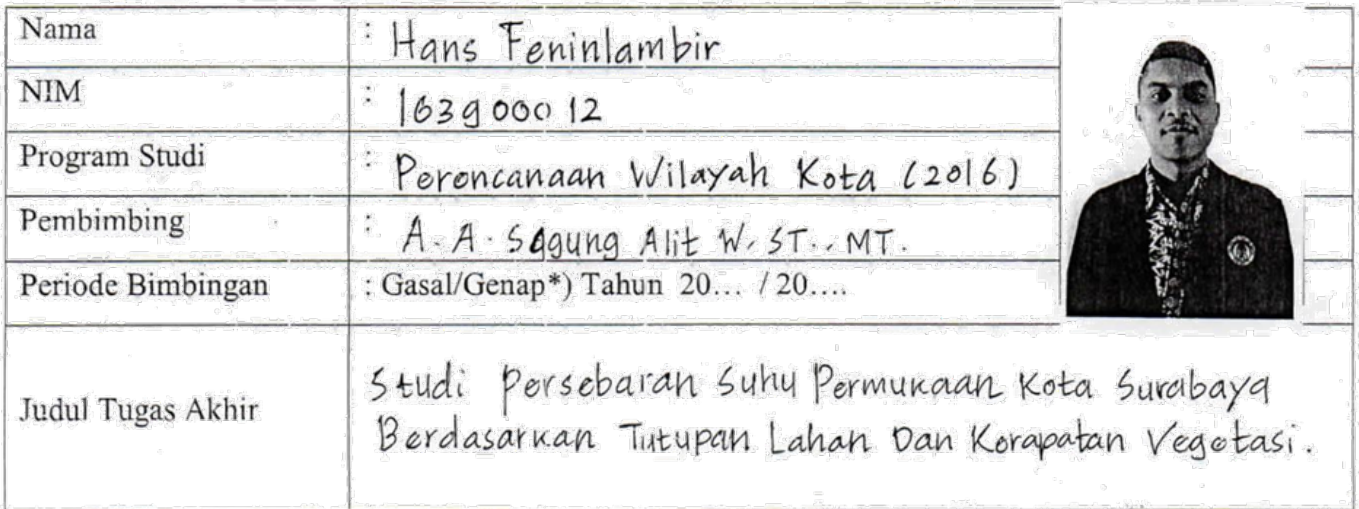 Nama : Hans Feninlambir
NIM : 163900012
Program Studi : Perencanaan Wilayah Kota (2016)
Pembimbing : A. A. Sagung Alit W. ST., MT.
Periode Bimbingan : Gasal/Genap*) Tahun 20... / 20....
Judul Tugas Akhir
Studi Persebaran Suhu Permukaan Kota Surabaya
Berdasarkan Tutupan Lahan Dan Kerapatan Vegetasi.